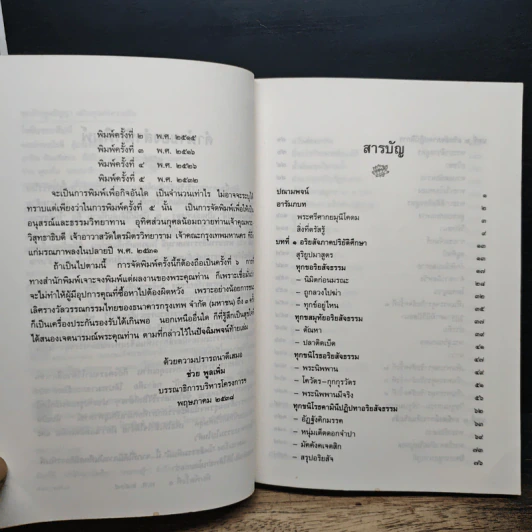 พิมพ์ครั้งที่ ๒ พ.ศ. ๒๕๑๕
พิมพ์ครั้งที่ ๓ พ.ศ. ๒๕๒๐
พิมพ์ครั้งที่ ๔ พ.ศ. ๒๕๒๖
พิมพ์ครั้งที่ ๕ พ.ศ. ๒๕๓๒
จะเป็นการพิมพ์เพื่อกิจอันใด เป็นจำนวนเท่าไร ไม่อาจจะระบุได้
ทราบแต่เพียงว่าในการพิมพ์ครั้งที่ ๕ นั้น เป็นการจัดพิมพ์เพื่อได้เป็น
อนุสรณ์และธรรมวิทยาทาน อุทิศส่วนกุศลน้อมถวายท่านเจ้าคุณพระ
วิสุทธาธิบดี เจ้าอาวาสวัดไตรมิตรวิทยาราม เจ้าคณะกรุงเทพมหานคร ที่ถึง
แก่มรณภาพลงในปลายปี พ.ศ. ๒๕๓๑
ถ้าเป็นไปตามนี้ การจัดพิมพ์ครั้งนี้ก็ต้องถือเป็นครั้งที่ ๖ การ
ทางสำนักพิมพ์เจาะจงพิมพ์แต่ผลงานของพระคุณท่าน ก็เพราะเชื่อมั่น
จะไม่ทำให้ผู้มีอุปการคุณที่ซื้อหาไปต้องผิดหวัง เพราะอย่างน้อยการชนะ
เลิศรางวัลวรรณกรรมไทยของธนาคารกรุงเทพ จำกัด (มหาชน) ถึง ๓ ครั้ง
ก็เป็นเครื่องประกันรองรับได้เกินพอ นอกเหนืออื่นใด ก็ที่รู้สึกเป็นสุขใจ
ได้สนองเจตนารมณ์พระคุณท่าน ตามที่กล่าวไว้ในปัจฉิมพจน์ท้ายเล่ม
ด้วยความปรารถนาดีเสมอ
ช่วย พูลเพิ่ม
บรรณาธิการบริหารโครงการฯ
พฤษภาคม ๒๕๓๘
สารบัญ
ปณามพจน์ ๑
อารัมภบท
พระศรีศากยมุนีโคดม
สิ่งที่ตรัสรู้
บทที่ ๑ อริยสัจภาคปริยัติศึกษา
สุริยูปมาสูตร
ทุกขอริยสัจธรรม
– นิมิตก่อนมรณะ
– ถูกลวงไปฆ่า
– ทุกข์อยู่ไหน
ทุกขสมุทัยอริยสัจธรรม
– ตัณหา
– ปลาติดเบ็ด
ทุกขนิโรธอริยสัจธรรม ๔๗
– พระนิพพาน
– โควัตร-กุกกุรวัตร
– พระนิพพานมีจริง
ทุกขนิโรธคามินีปฏิปทาอริยสัจธรรม ๖๒
– อัฏฐังคิกมรรค
– หนุ่มเด็ดดอกจำปา ๖๔
– มัคคังคเจตสิก ๗๓
– สรุปอริยสัจ ๗๖